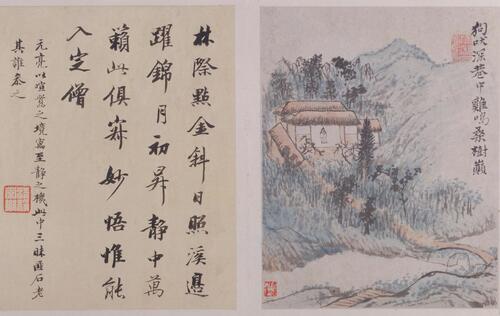 狗吠深巷中雞鳴桑樹巔
林際點金斜日照溪邊
躍錦月初昇靜中萬
籟此俱寂妙悟惟能
入定僧
元亮以喧鶩之境寫至靜之機此中三昧匪石老
其誰參之